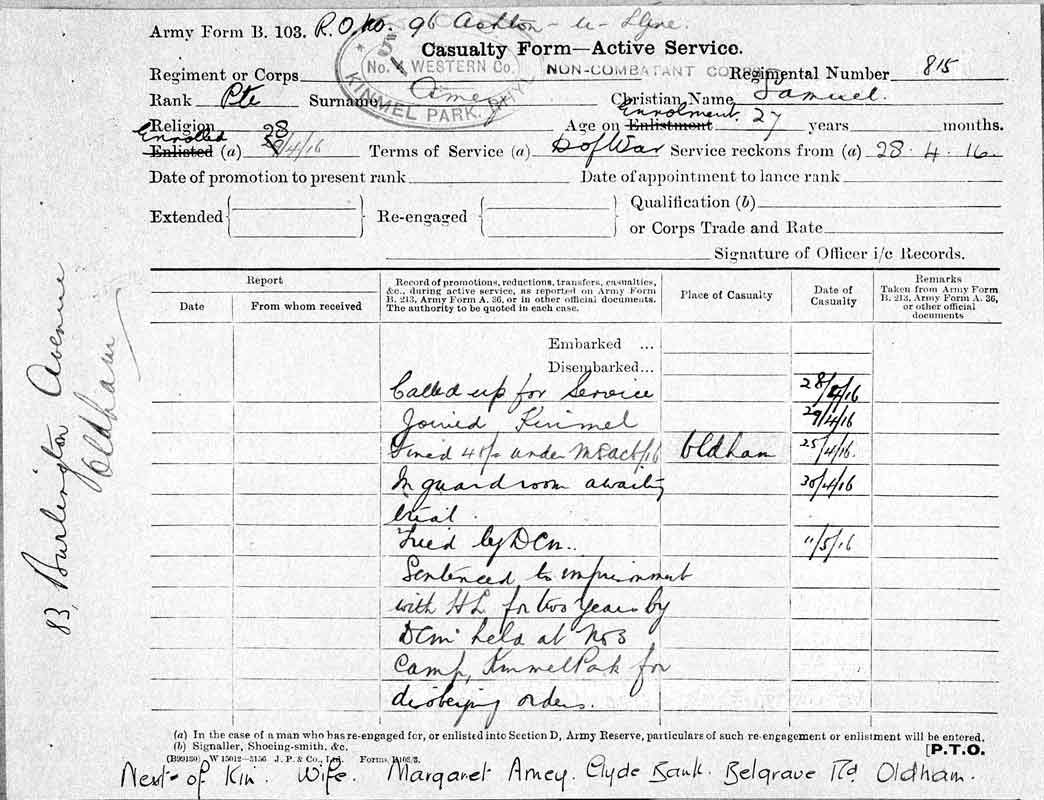 Army Form B. 103. R.O. No. 96 Ashton - u - Lyne.
Casualty Form—Active Service.
No. 4 WESTERN Co. KINMEL PARK, RHYL
Regiment or Corps NON-COMBATANT CORPS Regimental Number 815
Rank Pte Surname Amey Christian Name Samuel.
Religion Age on Enlistment Enrolment. 27 years months.
Enlisted Enrolled (a) 28/4/16 Terms of Service (a) D of War Service reckons from (a) 28 . 4 . 16.
Date of promotion to present rank Date of appointment to lance rank
Extended Re-engaged Qualification (b)
or Corps Trade and Rate
Signature of Officer i/c Records.
Report
Date
From whom received
Record of promotions, reductions, transfers, casualties,
&c., during active service, as reported on Army Form
B. 213, Army Form A. 36, or in other official documents.
The authority to be quoted in each case.
Place of Casualty
Date of
Casualty
Remarks
Taken from Army Form
B. 213, Army Form A. 36,
or other official
documents
Embarked ...
Disembarked...
Called up for Service 28/4/16
Joined Kinmel 29/4/16
Fined 40/- under MSact/16 Oldham 25/4/16.
In guard room awaiting 30/4/16
trial.
Tried by DCM.. 11/5/16
Sentenced to imprisonment
with HL for two years by
DCM held at No 3
Camp, Kinmel Park for
disobeying orders.
83, Burlington Avenue
Oldham
(a) In the case of a man who has re-engaged for, or enlisted into Section D, Army Reserve, particulars of such re-engagement or enlistment will be entered.
(b) Signaller, Shoeing-smith, &c.
[P.T.O.
(B99180) W 15012—5156 J. P. & Co., Ltd. Forms/B103/3.
Next of Kin. Wife. Margaret Amey. Clyde Bank. Belgrave Rd Oldham.